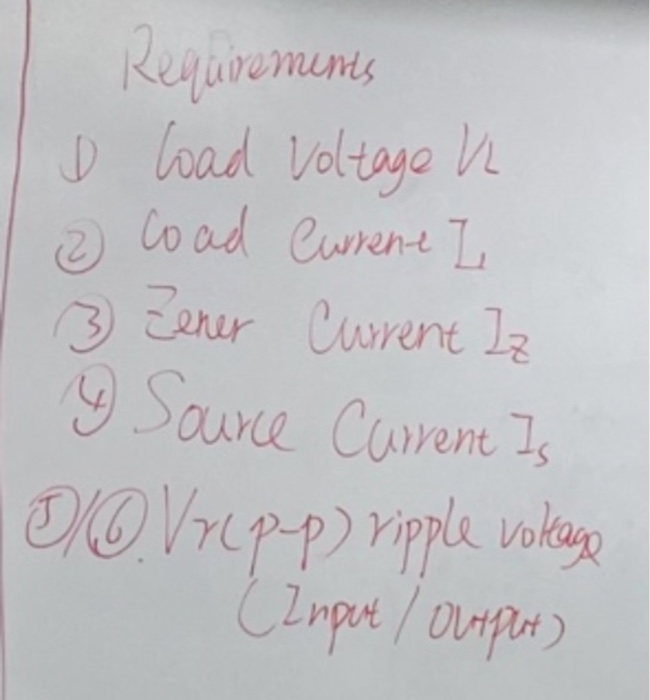 Requirements
① Load Voltage VL
② Load Current IL
③ Zener Current Iz
④ Source Current Is
⑤/⑥. Vr(p-p) ripple voltage
(Input / Output)